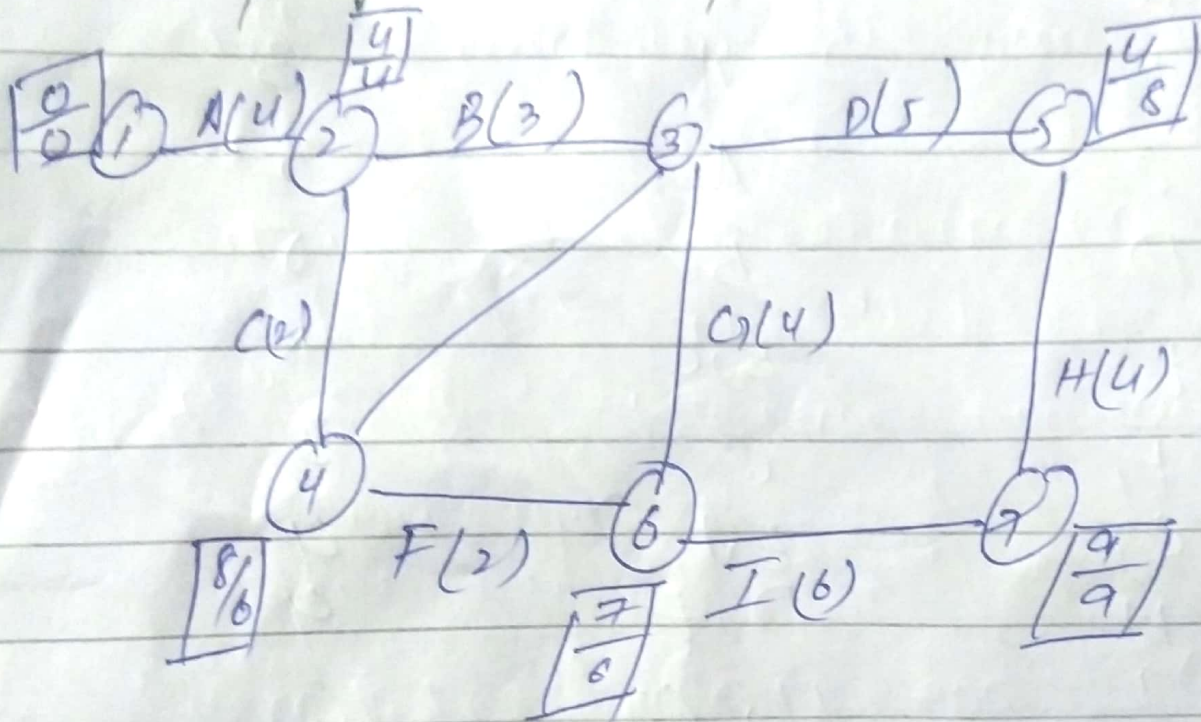 4
4
0
0
1
A(4)
2
B(3)
3
D(5)
5
4
8
C(2)
G(4)
H(4)
4
F(2)
6
I(6)
7
8/6
7
6
9
9